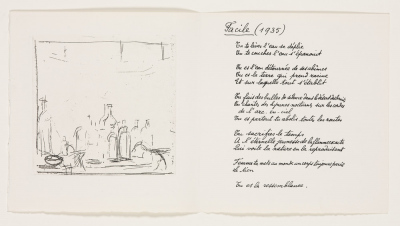 Facile (1935)
Tu te lèves l'eau se déplie
Tu te couches l'eau s'épanouit
Tu es l'eau détournée de ses abîmes
Tu es la terre qui prend racine
Et sur laquelle tout s'établit
Tu fais des bulles de silence dans le désert des bruits
Tu chantes des hymnes nocturnes sur les cordes
de l'arc-en-ciel
Tu es partout tu abolis toutes les routes
Tu sacrifies le temps
A l'éternelle jeunesse de la flamme exacte
Qui voile la nature en la reproduisant
Femme tu mets au monde un corps toujours pareil
Le tien
Tu es la ressemblance.